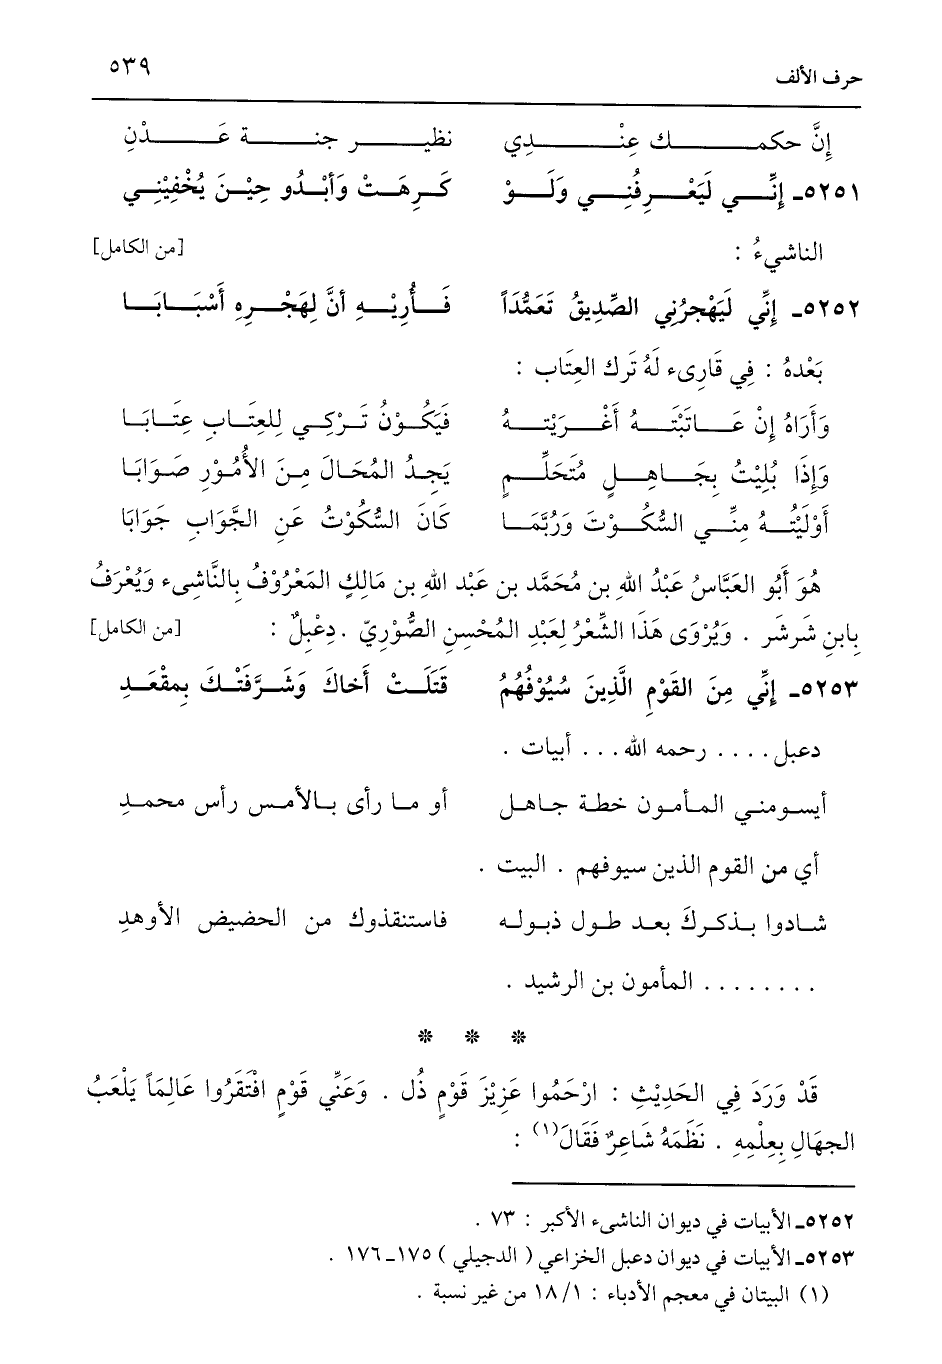 حرف الألف ٥٣٩
إنَّ حكمـك عِنْـدِي نظيـر جنـة عَـدْنِ
٥٢٥١ـ إِنِّي لَيَعْرِفُنِي وَلَوْ كَرِهَتْ وَأَبْدُو حِيْنَ يُخْفِيْنِي
الناشيءُ : [من الكامل]
٥٢٥٢ـ إِنِّي لَيَهْجرُنِي الصِّدِيقُ تَعَمُّدَاً فَأُرِيْهِ أنَّ لِهَجْرِهِ أَسْبَابَا
بَعْدهُ : فِي قَارِىء لَهُ تَرك العِتَاب :
وَأَرَاهُ إِنْ عَاتَبْتَهُ أَغْرَيْتهُ فَيَكُوْنُ تَرْكِي لِلعِتَابِ عِتَابَا
وَإِذَا بُلِيْتُ بِجَاهِلٍ مُتَحَلِّمٍ يَجِدُ المُحَالَ مِنَ الأُمُوْرِ صَوَابَا
أَوْلَيْتُهُ مِنِّي السُّكُوْتَ وَرُبَّمَا كَانَ السُّكُوْتُ عَنِ الجَّوَابِ جَوَابَا
هُوَ أَبُو العَبَّاسُ عَبْدُ اللهِ بن مُحَمَّد بن عَبْد اللهِ بن مَالِكٍ المَعْرُوْفُ بِالنَّاشِىء وَيُعْرَفُ
بِابنِ شَرشَر . وَيُرْوَى هَذَا الشِّعْرُ لِعَبْدِ المُحْسنِ الصُّوْرِيّ . دِعْبِلٌ : [من الكامل]
٥٢٥٣ـ إِنِّي مِنَ القَوْمِ الَّذِينَ سُيُوْفُهُمُ قَتَلَتْ أَخاكَ وَشَرَّفَتْكَ بِمقْعَدِ
دعبل . . . . رحمه الله . . . أبيات .
أيسومني المأمون خطة جاهل أو ما رأى بالأمس رأس محمدِ
أي من القوم الذين سيوفهم . البيت .
شادوا بذكركَ بعد طول ذبوله فاستنقذوك من الحضيض الأوهدِ
. . . . . . . . المأمون بن الرشيد .
* * *
قَدْ وَرَدَ فِي الحَدِيْثِ : ارْحَمُوا عَزِيْزَ قَوْمٍ ذُل . وَعَنِّي قَوْمٍ افْتَقَرُوا عَالِمَاً يَلْعَبُ
الجهَالِ بِعِلْمِهِ . نَظَمَهُ شَاعِرٌ فَقَالَ(١) :
٥٢٥٢ـ الأبيات في ديوان الناشىء الأكبر : ٧٣ .
٥٢٥٣ـ الأبيات في ديوان دعبل الخزاعي ( الدجيلي ) ١٧٥ـ ١٧٦ .
(١) البيتان في معجم الأدباء : ١٨/١ من غير نسبة .